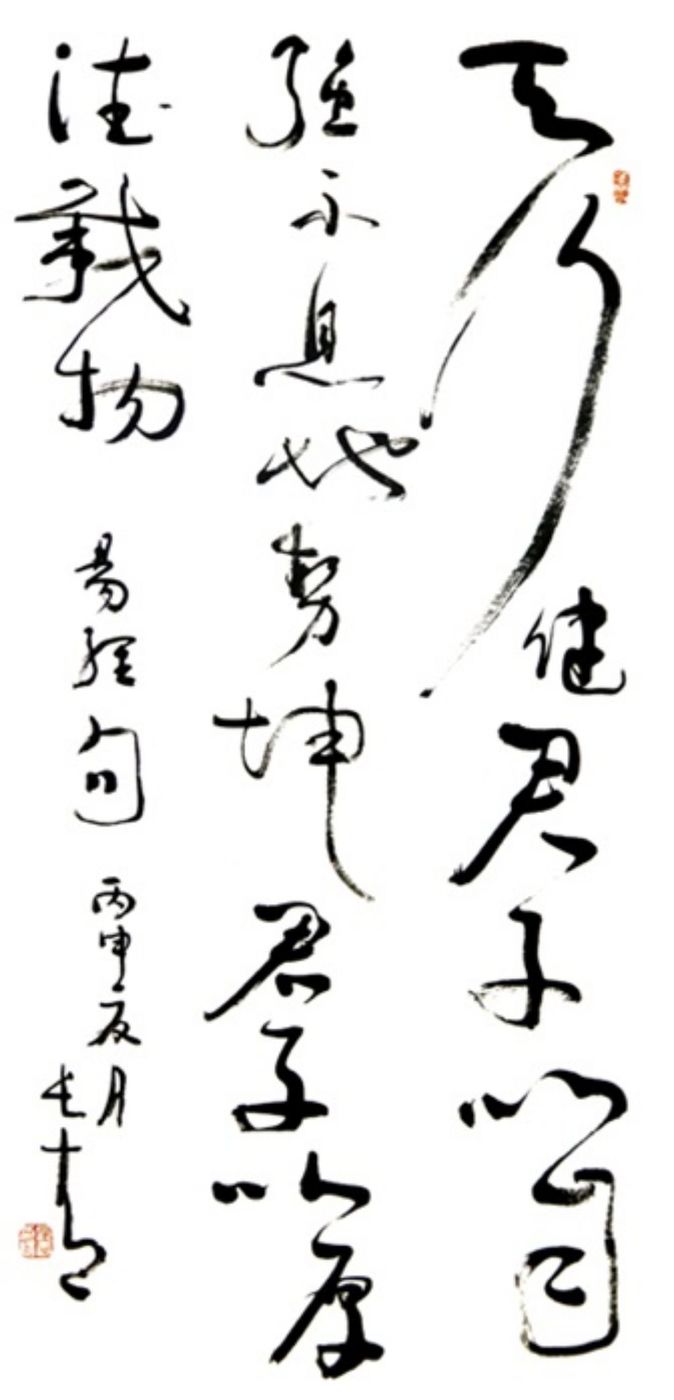 天行健君子以自
强不息地势坤君子以厚
德载物
易经句
丙申夏月